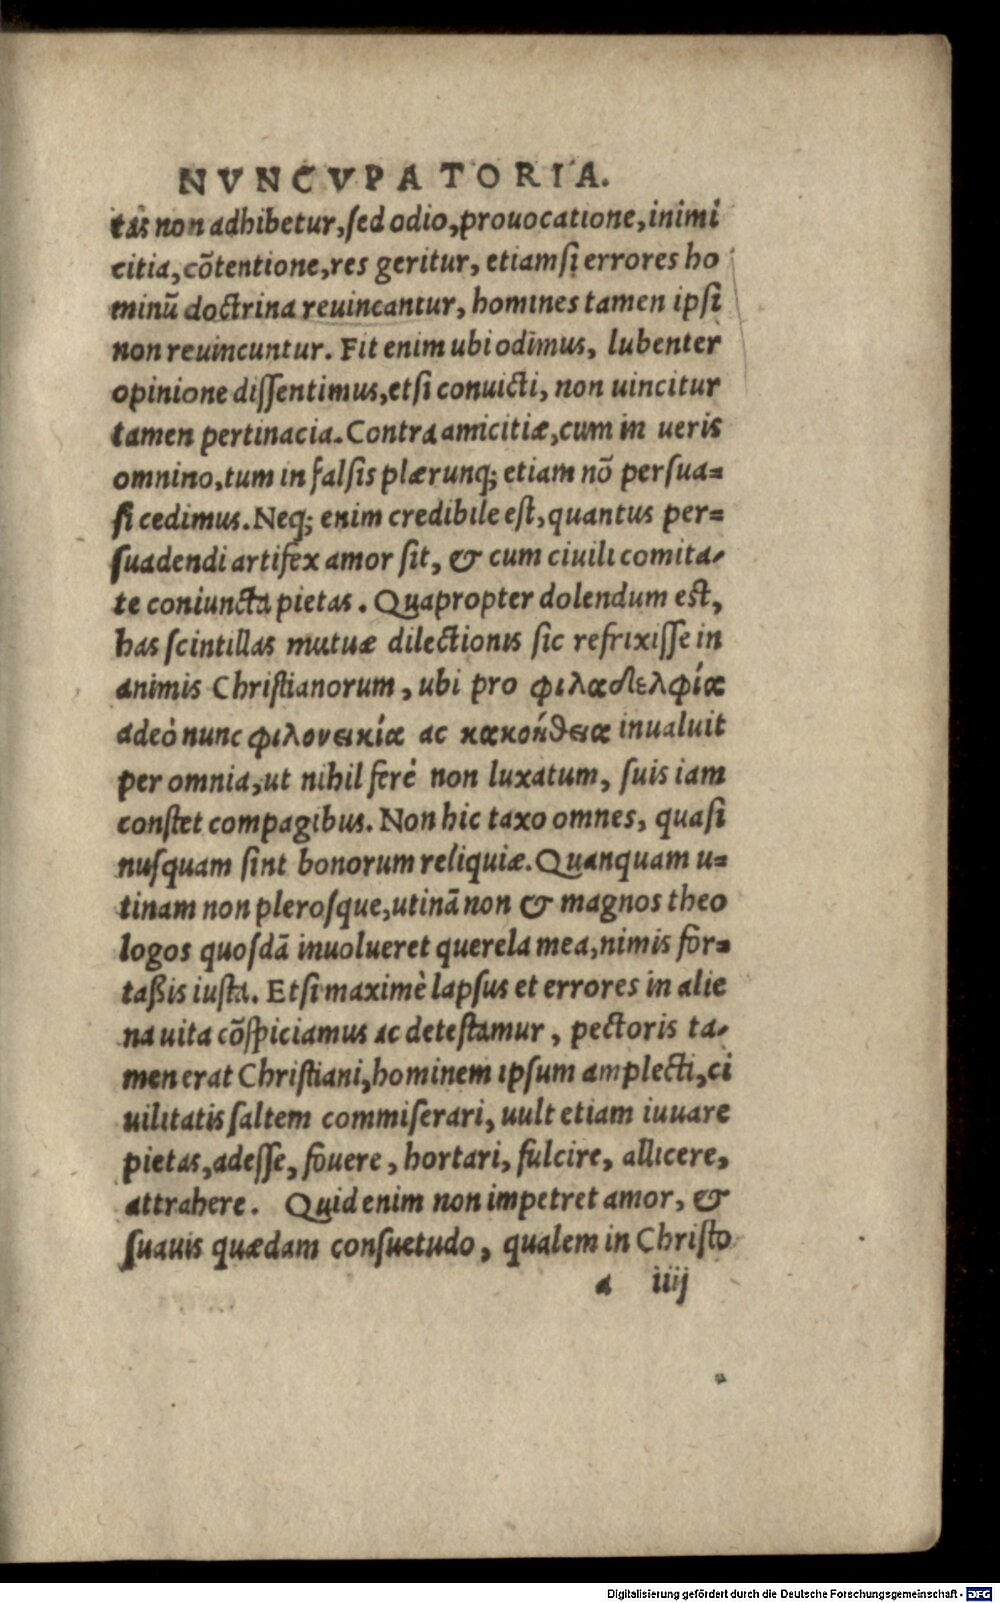 NVNCVPATORIA.
tas non adhibetur, sed odio, prouocatione, inimi
citia, cõtentione, res geritur, etiamsi errores ho
minũ doctrina reuincantur, homines tamen ipsi
non reuincuntur. Fit enim ubi odimus, lubenter
opinione dissentimus, etsi conuicti, non uincitur
tamen pertinacia. Contra amicitiæ, cum in ueris
omnino, tum in falsis plærunq; etiam nõ persua-
si cedimus. Neq; enim credibile est, quantus per-
suadendi artifex amor sit, & cum ciuili comita-
te coniuncta pietas. Quapropter dolendum est,
has scintillas mutuæ dilectionis sic refrixisse in
animis Christianorum, ubi pro φιλαδελφία
adeò nunc φιλονεικία ac κακοήθεια inualuit
per omnia, ut nihil ferè non luxatum, suis iam
constet compagibus. Non hic taxo omnes, quasi
nusquam sint bonorum reliquiæ. Quanquam u-
tinam non plerosque, utinã non & magnos theo
logos quosdã inuolueret querela mea, nimis for-
taßis iusta. Etsi maximè lapsus et errores in alie
na uita cõspiciamus ac detestamur, pectoris ta-
men erat Christiani, hominem ipsum amplecti, ci
uilitatis saltem commiserari, uult etiam iuuare
pietas, adesse, fouere, hortari, fulcire, allicere,
attrahere. Quid enim non impetret amor, &
suauis quædam consuetudo, qualem in Christo
a iiij
Digitalisierung gefördert durch die Deutsche Forschungsgemeinschaft - DFG